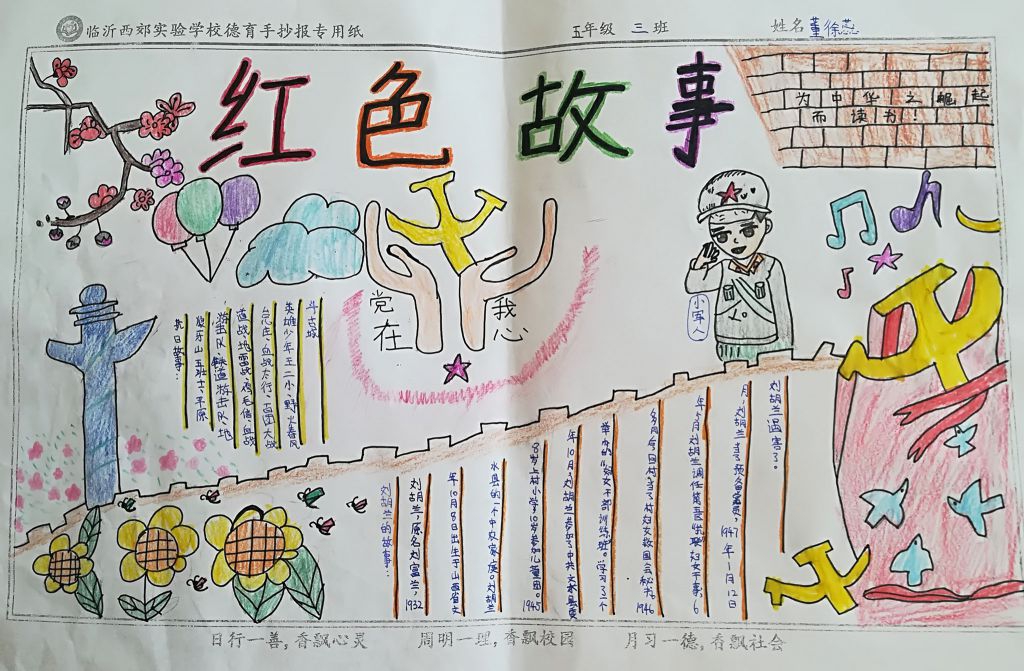 临沂西郊实验学校德育手抄报专用纸
五年级 三 班
姓名 董徐蕊
红色故事
为中华之崛起
而读书！
党在
我心
小军人
抗日故事：
狼牙山五壮士、平原
游击队、铁道游击队、地
道战、地雷战、鸡毛信、血战
台儿庄、血战太行、百团大战
英雄少年王二小、野火春风
斗古城
刘胡兰的故事：
刘胡兰，原名刘富兰，1932
年10月8日出生于山西省文
水县的一个中农家庭。刘胡兰
8岁上村小学10岁参加儿童团。1945
年10月，刘胡兰参加了中共文水县委
举办的妇女干部训练班。学习了一个
多月 回村当了村妇女救国会秘书。1946
年5月刘胡兰调任第五区抗联妇女干事，6
月，刘胡兰当了预备党员，1947年1月12日
刘胡兰遇害了。
日行一善，香飘心灵 周明一理，香飘校园 月习一德，香飘社会